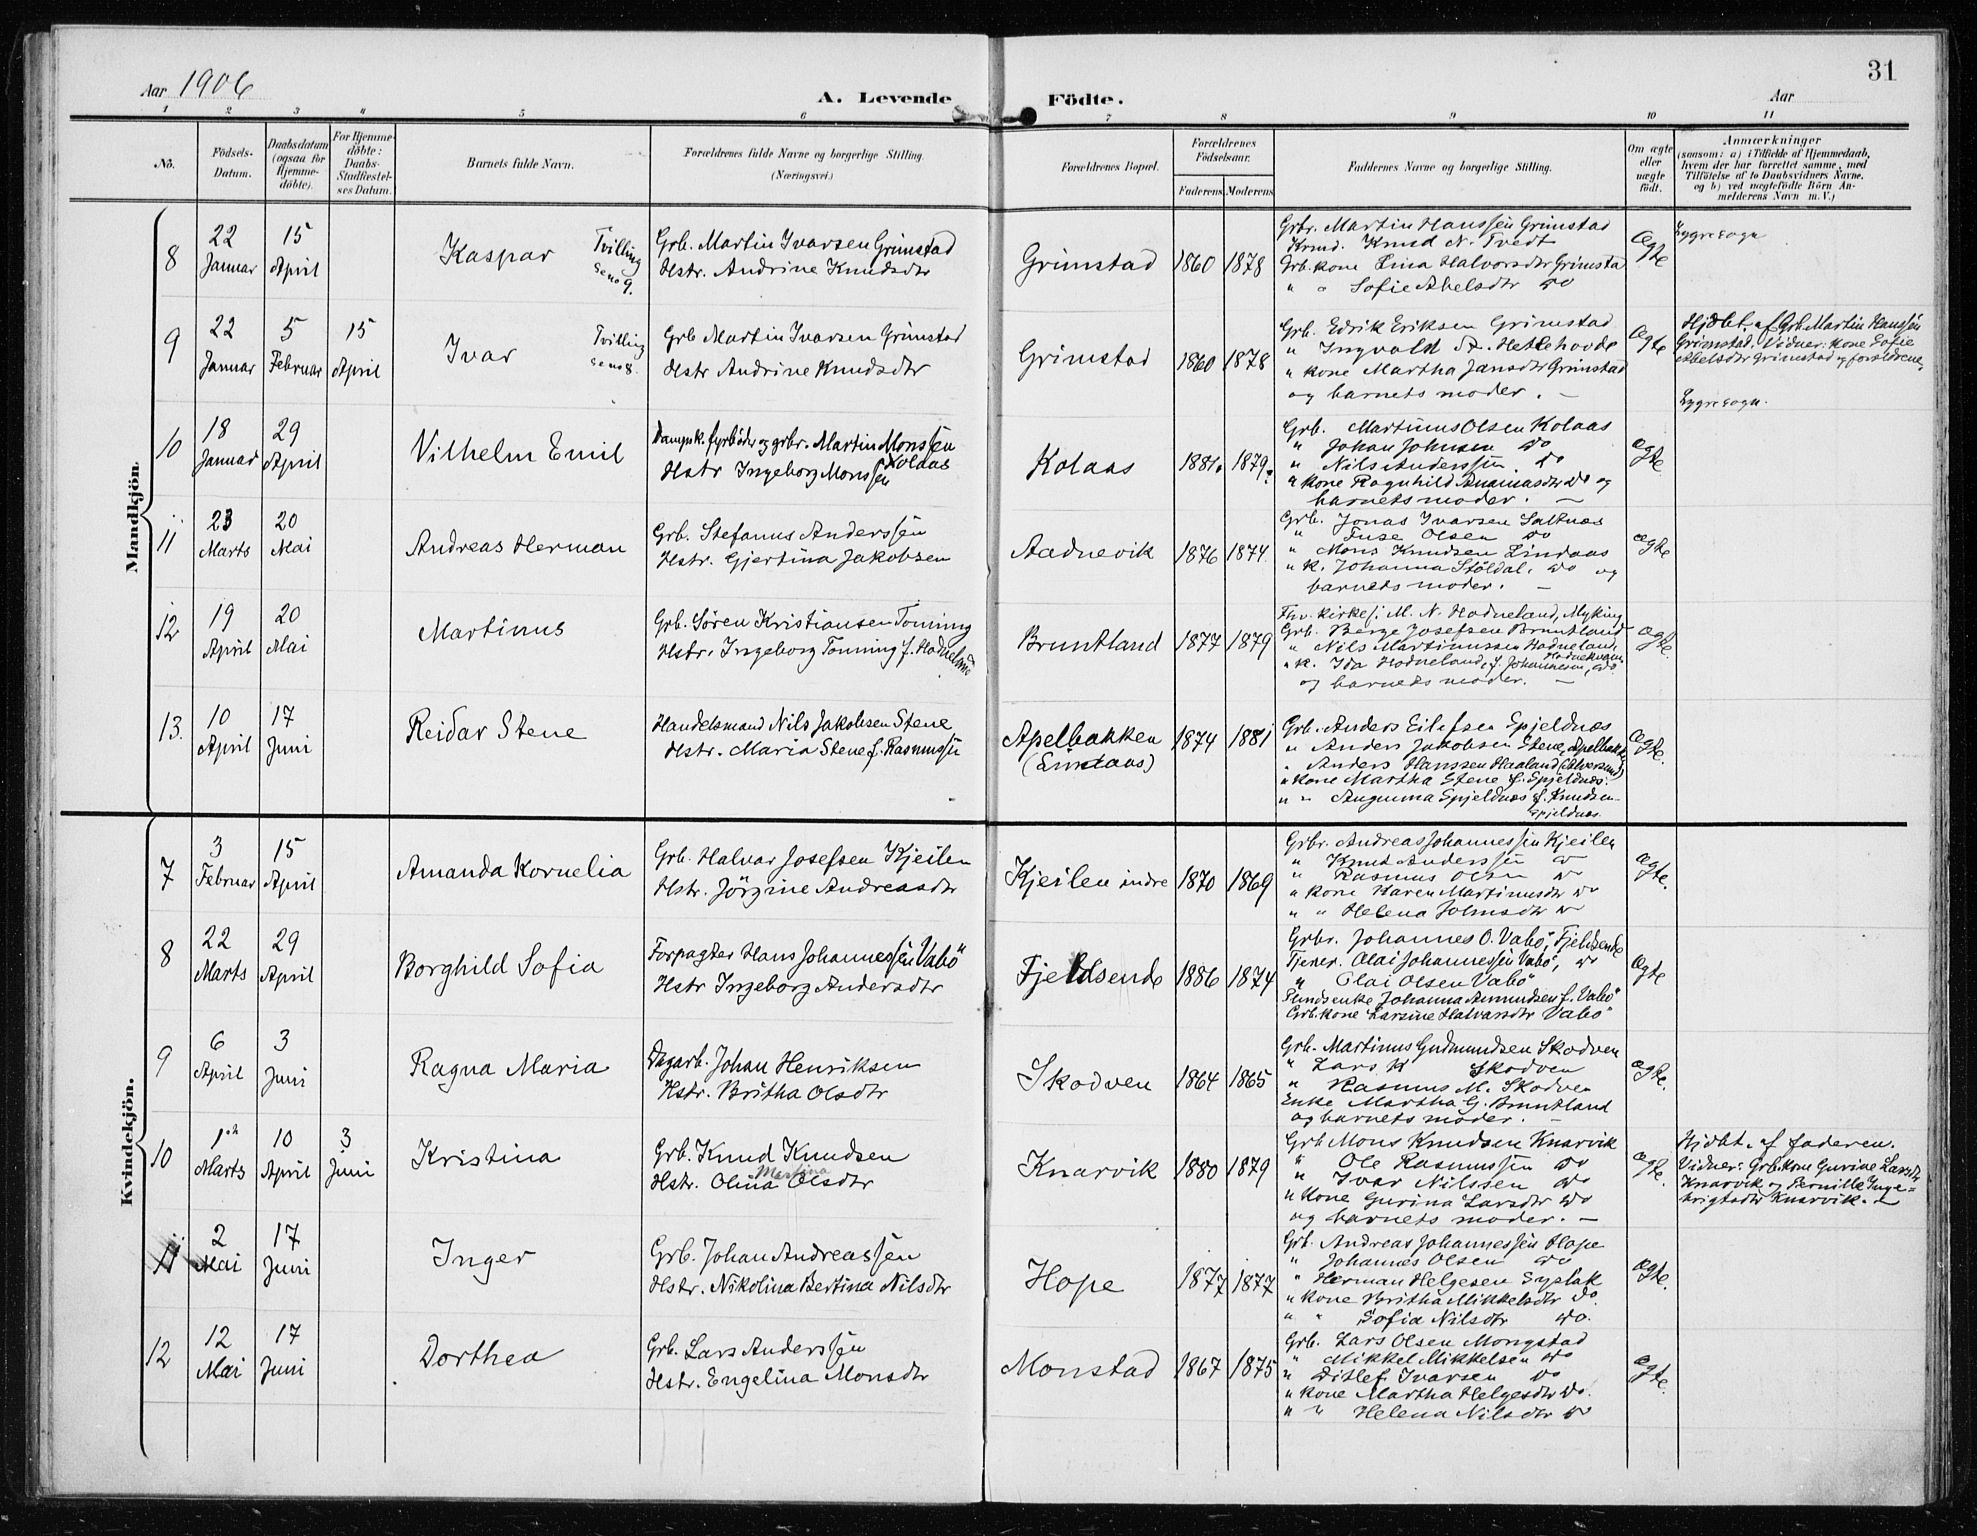 31
Aar 1906
A. Levende Födte.
Aar
1 2 3 4 5 6 7 8 9 10 11
No.
Födsels-Datum.
Daabsdatum (ogsaa for Hjemme-döbte).
For Hjemme-döbte: Daabs-Stadfæstel-ses Datum.
Barnets fulde Navn.
Forældrenes fulde Navne og borgerlige Stilling.
(Næringsvei.)
Forældrenes Bopæl.
Forældrenes Födselsaar.
Faderens Moderens
Faddernes Navne og borgerlige Stilling.
Om ægte eller uægte födt.
Anmærkninger
(saasom: a) i Tilfælde af Hjemmedaab,
hvem der har forrettet samme, med
Tilföielse af to Daabsvidners Navne,
og b) ved uægtefödte Börn An-
melderens Navn m. V.)
Mandkjön.
8
22 Januar
15 April
Kaspar
Tvilling se no 9.
Grb. Martin Ivarsen Grimstad
Hstr. Andrine Knudsdtr
Grimstad
1860 1878
Grbr. Martin Hanssen Grimstad
Krmd. Knud N. Tvedt
Grb. kone Lina Halvorsdtr Grimsta
" " Sofie Abelsdtr do
Ægte
Lygre sogn
9
22 Januar
5 Februar
15 April
Ivar
Tvilling se no 8.
Grb Martin Ivarsen Grimstad
Hstr Andrine Knudsdtr
Grimstad
1860 1878
Grb. Edrik Eriksen Grimstad
" Ingvald A. Hetlehovde
" kone Martha Jansdtr Grimstad
og barnets moder. —
Ægte
Hjdbt. af Grb. Martin Hanssen
Grimstad. Vidner: kone Sofie
Abelsdtr Grimstad og forældrene,
Lygre sogn.
10
18 Januar
29 April
Vilhelm Emil
Dampsk. fyrböder og grbr. Martin Monssen
Kolaas
Hstr Ingeborg Monssen
Kolaas
1881. 1879.
Grb. Martinus Olsen Kolaas
" Johan Johnsen do
" Nils Anderssen do
" kone Ragnhild Ananiasdtr do og
barnets moder. —
ægte
11
23 Marts
20 Mai
Andreas Herman
Grb. Stefanus Anderssen
Hstr. Gjertina Jakobsen
Aadnevik
1876 1874
Grb. Jonas Ivarsen Saltnæs
" Tuse Olsen do
" Mons Knudsen Lindaas
" k. Johanna Stöldal. do og
barnets moder. —
ægte
12
19 April
20 Mai
Martinus
Grb. Sören Kristiansen Tonning
Hstr. Ingeborg Tonning f. Hodneland
Bruntland
1877 1879
Fhv. kirkesj. M. N. Hodneland, Myking
Grb. Berge Josefsen Bruntland
" Nils Martinussen Hodneland,
" k. Ida Hodneland, f. Johannesen, do
og barnets moder. —
ægte.
13.
10 April
17 Juni
Reidar Stene
Handelsmand Nils Jakobsen Stene
Hstr. Maria Stene f. Rasmussen
Apelbakken
(Lindaas)
1874 1881
Grb. Anders Eilefsen Spjeldnæs
" Anders Jakobsen Stene, Apelbakken
" Anders Hanssen Haaland (Alversund)
" kone Martha Stene f. Spjeldnæs.
" " Augunna Spjeldnæs f. Knudsen
Spjeldnæs.
Ægte.
Kvindekjön.
7
3 Februar
15 April
Amanda Kornelia
Grb. Halvar Josefsen Kjeilen
Hstr. Jörgine Andreasdtr
Kjeilen indre
1870 1869
Grbr. Andreas Johannessen Kjeilen
" Knud Anderssen do
" Rasmus Olsen do
" kone Karen Martinusdtr do
" " Helena Johnsdtr do
ægte.
8
22 Marts
29 April
Borghild Sofia
Forpagter Hans Johannessen Vabö
Hstr Ingeborg Andersdtr
Fjeldsende
1886 1874
Grbr. Johannes O. Vabö, Fjeldsende
Tjener. Olai Johannessen Vabö, do
" Olai Olsen Vabö
Pundsenke Johanna Amundsen f. Vabö
Grb. kone Larsine Halvarsdtr Vabö
Ægte
9
6 April
3 Juni
Ragna Maria
Dagarb. Johan Henriksen
Hstr. Britha Olsdtr
Skodven
1864 1865
Grb. Martinus Gudmundsen Skodven
" Lars K Skodven
" Rasmus M. Skodven
Enke Martha G. Bruntland
og barnets moder. —
ægte.
10
1 Marts
10 April
3 Juni
Kristina
Grb. Knud Knudsen
Martina
Hstr. Olina Olsdtr
Knarvik
1880 1879
Grb Mons Knudsen Knarvik
" Ole Rasmussen do
" Ivar Nilssen do
" kone Gurina Larsdtr do
og barnets moder. —
ægte.
Hjdbt. af faderen.
Vidner: Grb. kone Gurine Larsdtr
Knarvik og Pernille Inge-
brigtsdtr Knarvik. —
11
2 Mai
17 Juni
Inger
Grb. Johan Andreassen
Hstr. Nikolina Bertina Nilsdtr
Hope
1877 1877
Grb. Andreas Johannessen Hope
" Johannes Olsen do
" Herman Helgesen Syslak
" kone Britha Mikkelsdtr do.
" " Sofia Nilsdtr do.
ægte.
12
12 Mai
17 Juni
Dorthea
Grb. Lars Anderssen
Hstr. Engelina Monsdtr
Monstad
1867 1875
Grb. Lars Olsen Mongstad
" Mikkel Mikkelsen do
" Ditlef Ivarsen do
" kone Martha Helgesdtr do.
" " Helena Nilsdtr do
ægte.